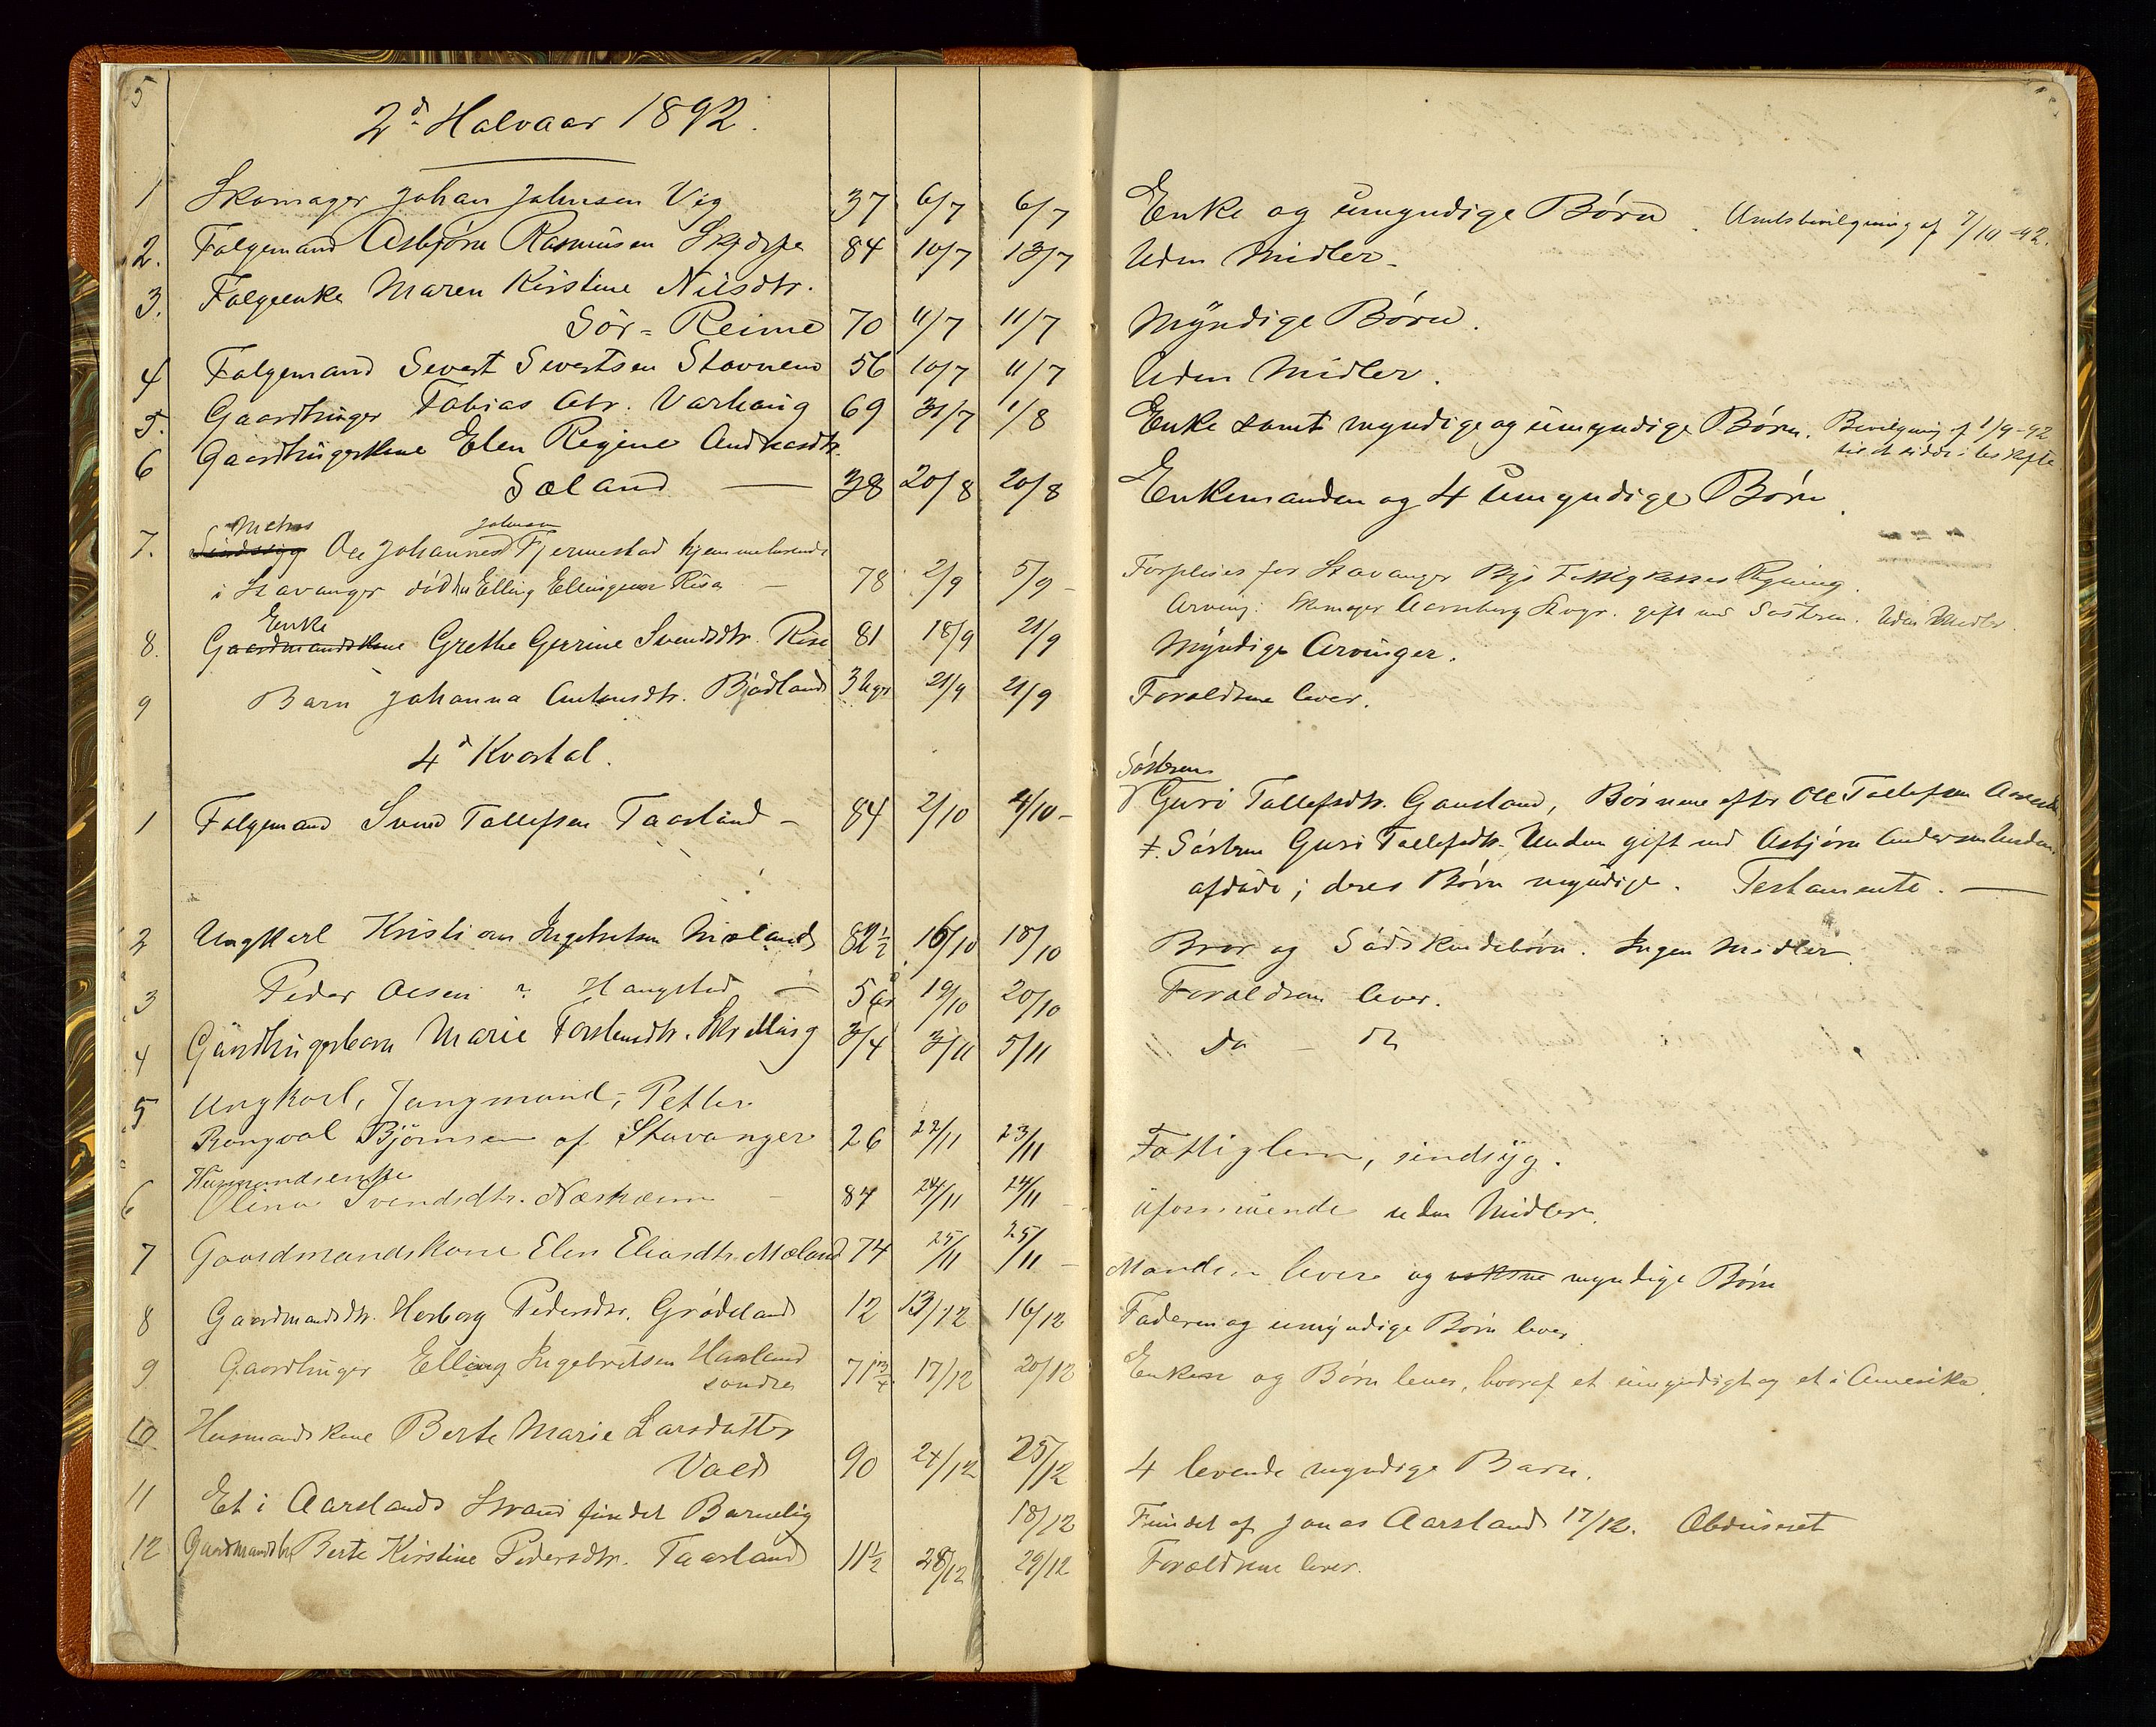 5
2d Halvaar 1892.
1 Skomager Johan Johnsen Vig 37 6/7 6/7 Enke og umyndige Børn. Amtsbevilgning af 7/10 92.
2. Folgemand Asbjørn Rasmusen 84 10/7 13/7 Uden Midler.
3. Folgeenke Maren Kirstine Nilsdtr.
Sör-Reime 70 11/7 11/7 Myndige Børn.
4 Folgemand Sivert Sivertsen Stavnem 56 10/7 11/7 Uden Midler.
5. Gaardbruger Tobias Varhaug 69 31/7 1/8 Enke samt myndige og umyndige Børn. Bevilgning af 1/9-92
til at sidde i
6 Gaardbrugerkone Elen Regine Andreasdtr.
Sæland — 38 20/8 20/8 Enkemanden og 4 umyndige Børn.
7. Ole Johannes Johnsen Fjermestad hjemmehørende
i Stavanger død hos Elling Ellingsen Risa — 78 2/9 5/9 Forpleies for Stavanger Bys Fattigkasses Regning.
Arving: Skomager gift med Søsteren. Uden Midler.
Enke
8. Gaardmandskone Grethe Gurine Svendsdtr. Risa 81 18/9 21/9 Myndige Arvinger.
9 Barn Johanna Antonsdtr. Bjødland 3 Uger 21/9 21/9 Forældrene lever.
4d Kvartal.
Söstrene
1 Folgemand Svend Tollefsen Taarland — 84 2/10 4/10 Guri Tollefsdtr. Gausland, Börnene efter Ole Tollefsen
Søsteren Guri Tollefsdtr. gift med Asbjørn Andersen
afdøde; deres Børn myndige. Testamente. —
2 Ungkarl Kristian Ingebretsen Mæland 82½ 16/10 18/10 Bror og Södskendebörn. Ingen Midler.
3 Peder Olsen N. Haugstad — 5 19/10 20/10 Forældrene lever.
4 Gaardbrugerbarn Marie Torstensdtr. Kvalling 3/4 3/11 5/11 Do — do
5 Ungkarl, Jungmand, Petter
Rangval Björnsen af Stavanger 26 22/11 23/11 Fattiglem, sindsyg.
Husmandsenke
6 Olina Svendsdtr. Næsheim — 84 24/11 24/11 uformuende uden Midler.
7 Gaardmandskone Elen Eliasdtr. Mæland 74 25/11 25/11 Manden lever og voksne myndige Börn
8 Gaardmandsdtr. Herborg Pedersdtr. Grødeland 12 13/12 16/12 Faderen og umyndige Børn lever.
9 Gaardbruger Elling Ingebretsen Haaland
søndre 71¾ 17/12 20/12 Enken og Børn lever, hvoraf et umyndigt og et i Amerika.
10 Husmandskone Berte Marie Larsdatter
Vold 90 24/12 25/12 4 levende myndige Barn.
11 Et i Aarslands Strand fundet Barnelig 18/12 Fundet af Jonas Aarsland 17/12. Obduseret
12 Gaardmandsdtr. Berte Kirstine Pedersdtr. Taarland 11½ 28/12 29/12 Forældrene lever.